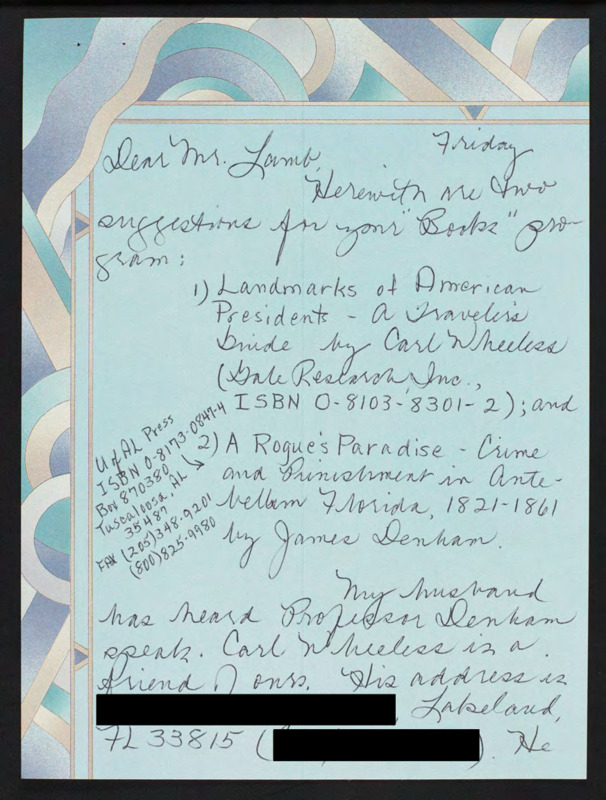 Friday
Dear Mr. Lamb,
Herewith are two
suggestions for your "Books" pro-
gram:
1) Landmarks of American
Presidents - A Traveler's
Guide by Carl Wheeless
(Gale Research, Inc.,
ISBN 0-8103-8301-2); and
2) A Rogue's Paradise - Crime
and Punishment in Ante-
bellum Florida, 1821-1861
by James Denham.
U of AL Press
ISBN 0-8173-0847-4
Box 870380
Tuscaloosa, AL
35487
FAX (205) 348-9201
(800) 825-9980
My husband
has heard Professor Denham
speak. Carl Wheeless is a
friend of ours. His address is
, Lakeland,
FL 33815 ( ). He